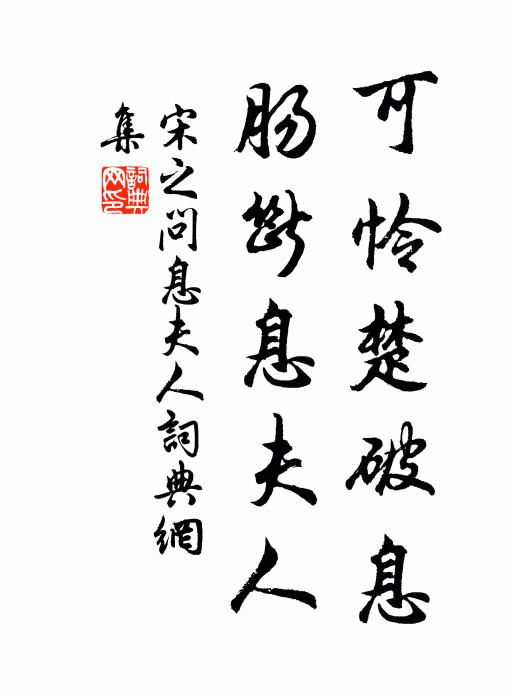 可怜楚破息
肠断息夫人
宋之问息夫人詞典網
集
詞典
网印